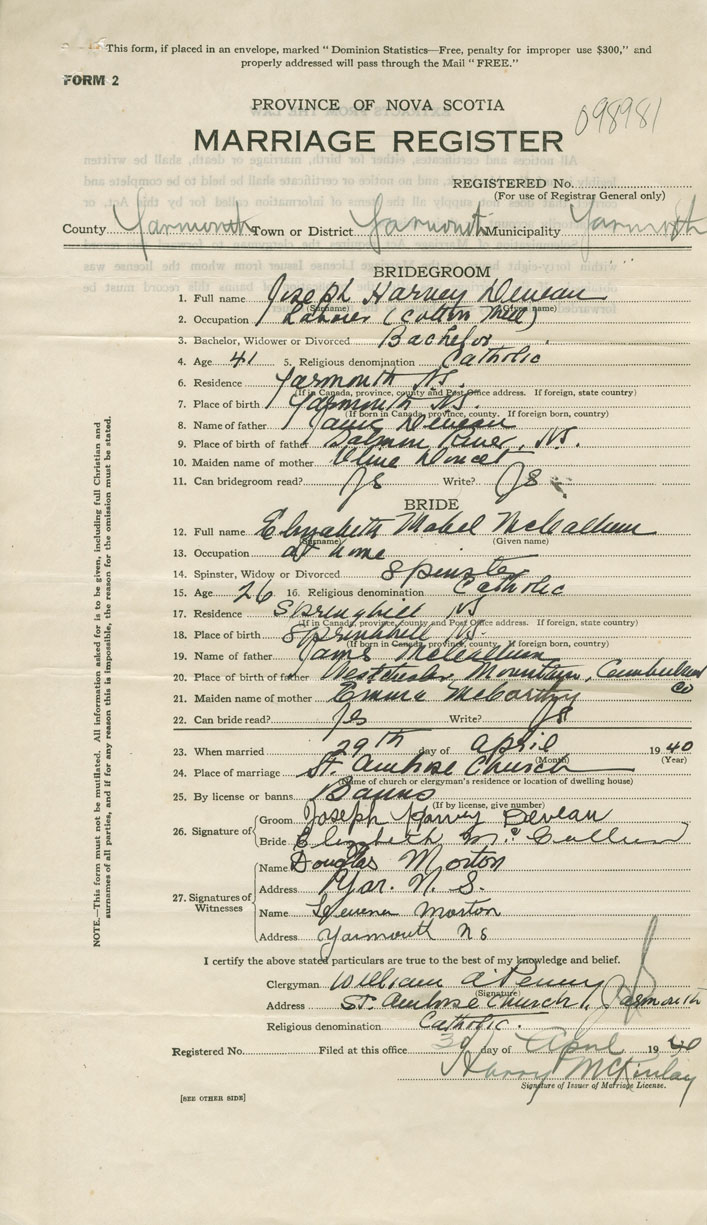 This form, if placed in an envelope, marked "Dominion Statistics—Free, penalty for improper use $300," and
properly addressed will pass through the Mail "FREE."
FORM 2
PROVINCE OF NOVA SCOTIA
098981
MARRIAGE REGISTER
REGISTERED No.
(For use of Registrar General only)
County Yarmouth Town or District Yarmouth Municipality Yarmouth
BRIDEGROOM
1. Full name Joseph Harvey Deveau
(Surname) (Given name)
2. Occupation Laborer (Cotton Mill)
3. Bachelor, Widower or Divorced Bachelor
4. Age 41 5. Religious denomination Catholic
6. Residence Yarmouth NS.
(If in Canada, province, county and Post Office address. If foreign, state country)
7. Place of birth Yarmouth NS.
(If born in Canada, province, county. If foreign born, country)
8. Name of father Deveau
9. Place of father Salmon River, NS.
10. Maiden name of mother Doucet
11. Can bridegroom read? Yes Write? Yes
BRIDE
12. Full name Elizabeth Mabel McCallum
(Surname) (Given name)
13. Occupation at home
14. Spinster, Widow or Divorced Spinster
15. Age 26 16. Religious denomination Catholic
17. Residence Springhill NS
(If in Canada, province, county and Post Office address. If foreign, state country)
18. Place of birth Springhill NS.
(If born in Canada, province, county. If foreign born, country)
19. Name of father James McCallum
20. Place of birth of father Westchester Mountain, Cumberland
Co
21. Maiden name of mother Emma McCarthy
22. Can bride read? Yes Write? Yes
23. When married 29th day of April 1940
(Month) (Year)
24. Place of marriage St. Ambrose Church
(Name of church or clergyman's residence or location of dwelling house)
25. By license or banns Banns
(If by license, give number)
26. Signature of
Groom Joseph Harvey Deveau
Bride Elizabeth McCullum
27. Signatures of Witnesses
Name Douglas Morton
Address Yar. N. S.
Name Morton
Address Yarmouth NS
I certify the above stated particulars are true to the best of my knowledge and belief.
Clergyman William A Penny
(Signature)
Address St. Ambrose Church, Yarmouth
Religious denomination Catholic.
Registered No. Filed at this office 30 day of April 1940
Harry McKinlay
Signature of Issuer of Marriage License.
[SEE OTHER SIDE]
NOTE.—This form must not be mutilated. All information asked for is to be given, including full Christian and
surnames of all parties, and if for any reason this is impossible, the reason for the omission must be stated.